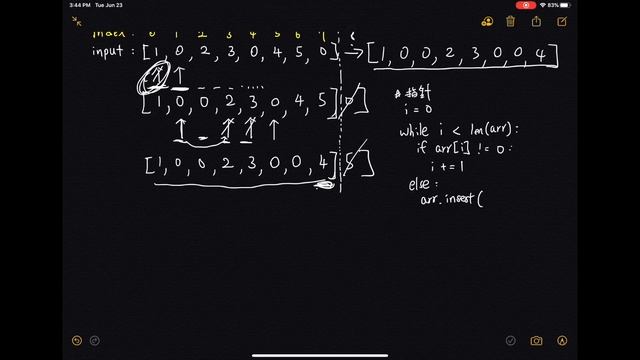 3:44 PM Tue Jun 23
83%
index: 0 1 2 3 4 5 6 7 8
input : [1, 0, 2, 3, 0, 4, 5, 0] → [1, 0, 0, 2, 3, 0, 0, 4]
[1, 0, 0, 2, 3, 0, 4, 5] 0]
[1, 0, 0, 2, 3, 0, 0, 4] 5]
# 指針
i = 0
while i < len(arr):
if arr[i] != 0:
i += 1
else:
arr.insert(